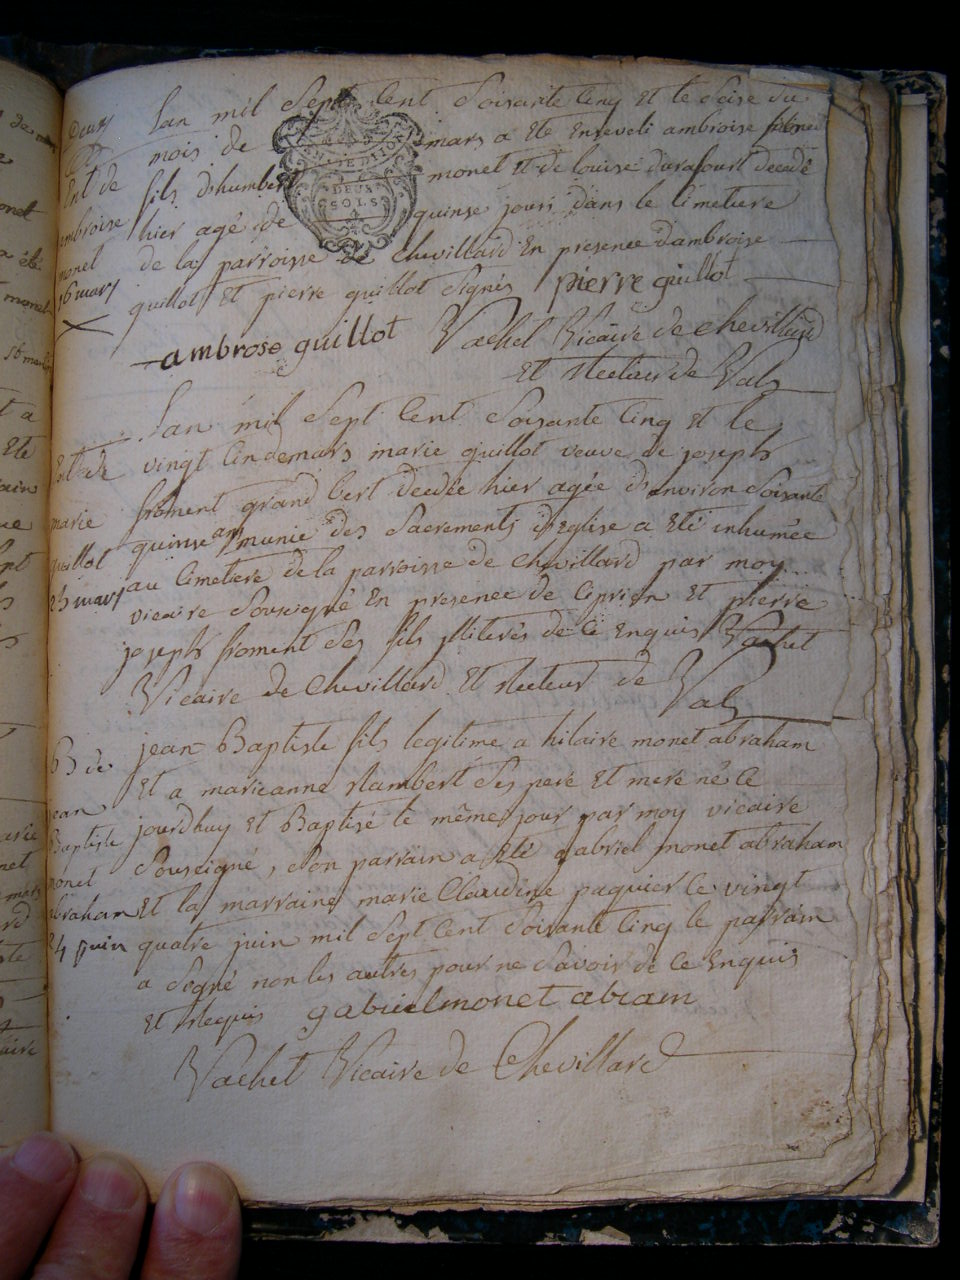 Lan mil Sept Cent Soixante Cinq Et le Seise du
mois de mars a Eté Enseveli ambroise
fils d'humbert monet Et de louise durafourt decedé
hier agé de quinse jours dans le Cimetiere
de la parroisse de Chevillard En presence d'ambroise
quillot Et pierre guillot Signés pierre guillot
ambrose guillot Vachet Vicaire de Chevillard
Et Recteur de Vals
GEN. DE DIJON
DEUX
SOLS
Ent de
ambroise
monet
16 mars
Lan mil Sept Cent Soixante Cinq Et le
vingt Cin de mars marie guillot veuve de joseph
froment grand bert decedée hier agée d'environ Soixante
quinse ans munie des Sacrements d'Eglise a Eté inhumée
au Cimetiere de la parroisse de Chevillard par moy
vicaire Sousigné En presence de Ciprien Et pierre
joseph froment Ses fils illiterés de Ce Enquis Vachet
Vicaire de Chevillard Et Recteur de Vals
Ent de
marie
guillot
25 mars
jean Baptiste fils legitime a hilaire monet abraham
Et a marieanne Rambert Ses pere Et mere né Ce
jourdhuy Et Baptisé le même jour par moy vicaire
Sousigné, Son parrain a Eté gabriel monet abraham
Et la marraine marie Claudine paquier Ce vingt
quatre juin mil Sept Cent Soixante Cinq le parrain
a Signé non les autres pour ne Savoir de Ce Enquis
Et Requis gabriel monet abram
Vachet Vicaire de Chevillard
B de
jean
Baptiste
monet
abraham
24 juin